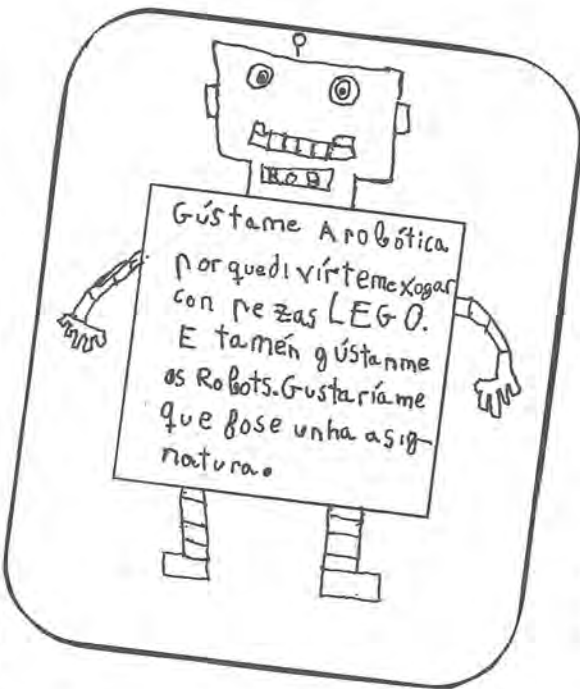 ROB
Gústame A robótica
porquedivírtemexogar
con pezas LEGO.
E tamén gústanme
os Robots.Gustaríame
que fose unha asig-
natura.